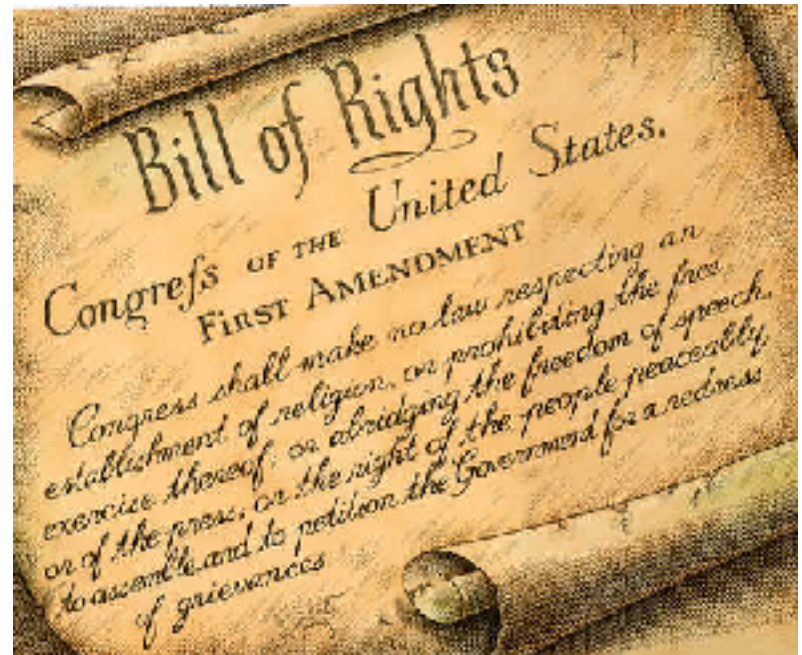 Bill of Rights
Congreſs OF THE United States.
FIRST AMENDMENT
Congress shall make no law respecting an
establishment of religion, or prohibiting the free
exercise thereof; or abridging the freedom of speech,
or of the press, or the right of the people peaceably,
to assemble and to petition the Government for a redress
of grievances